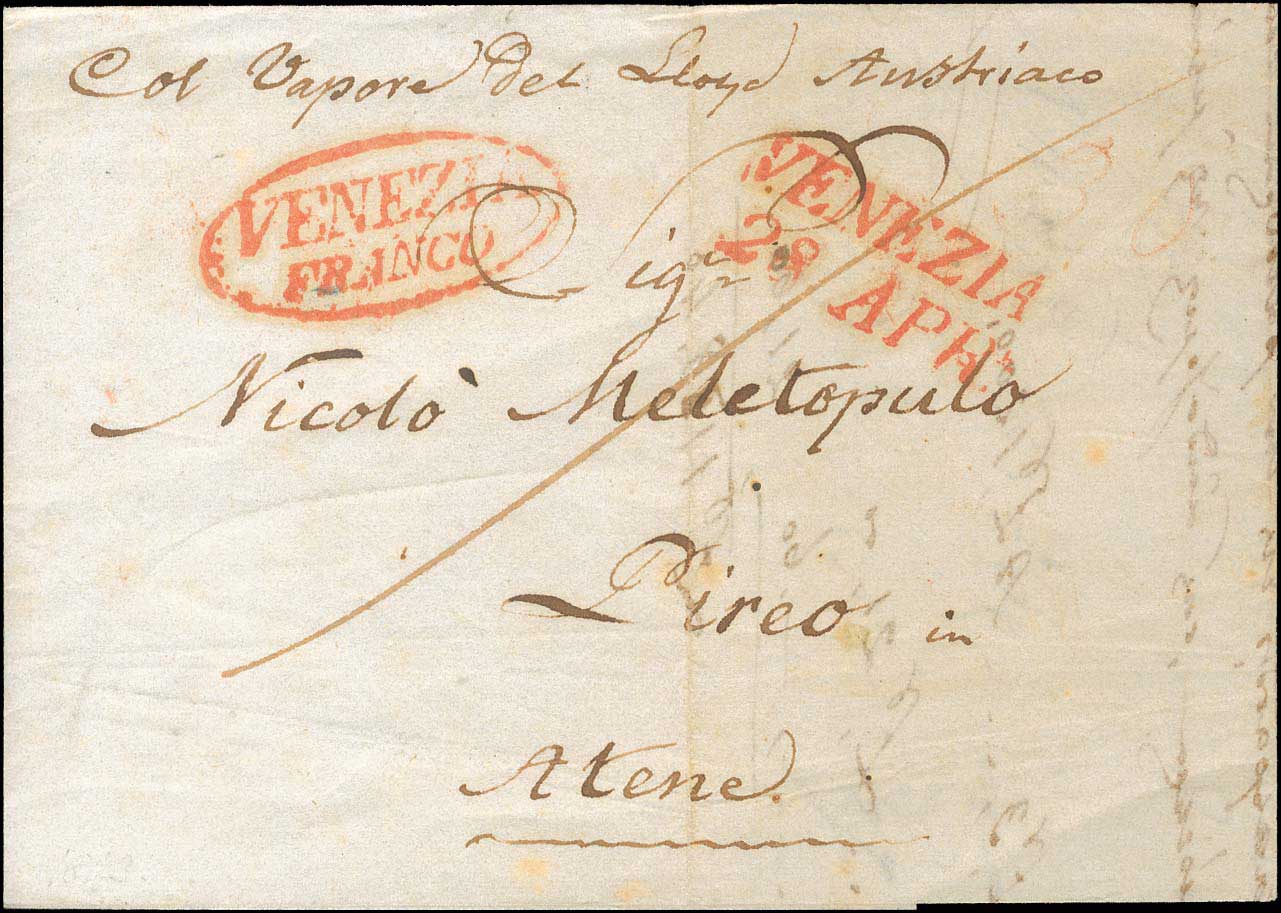 Col Vapore del Lloyd Austriaco
VENEZIA
FRANCO
VENEZIA
28 APR.
Sigr
Nicolò Meletopulo
Pireo in
Atene.